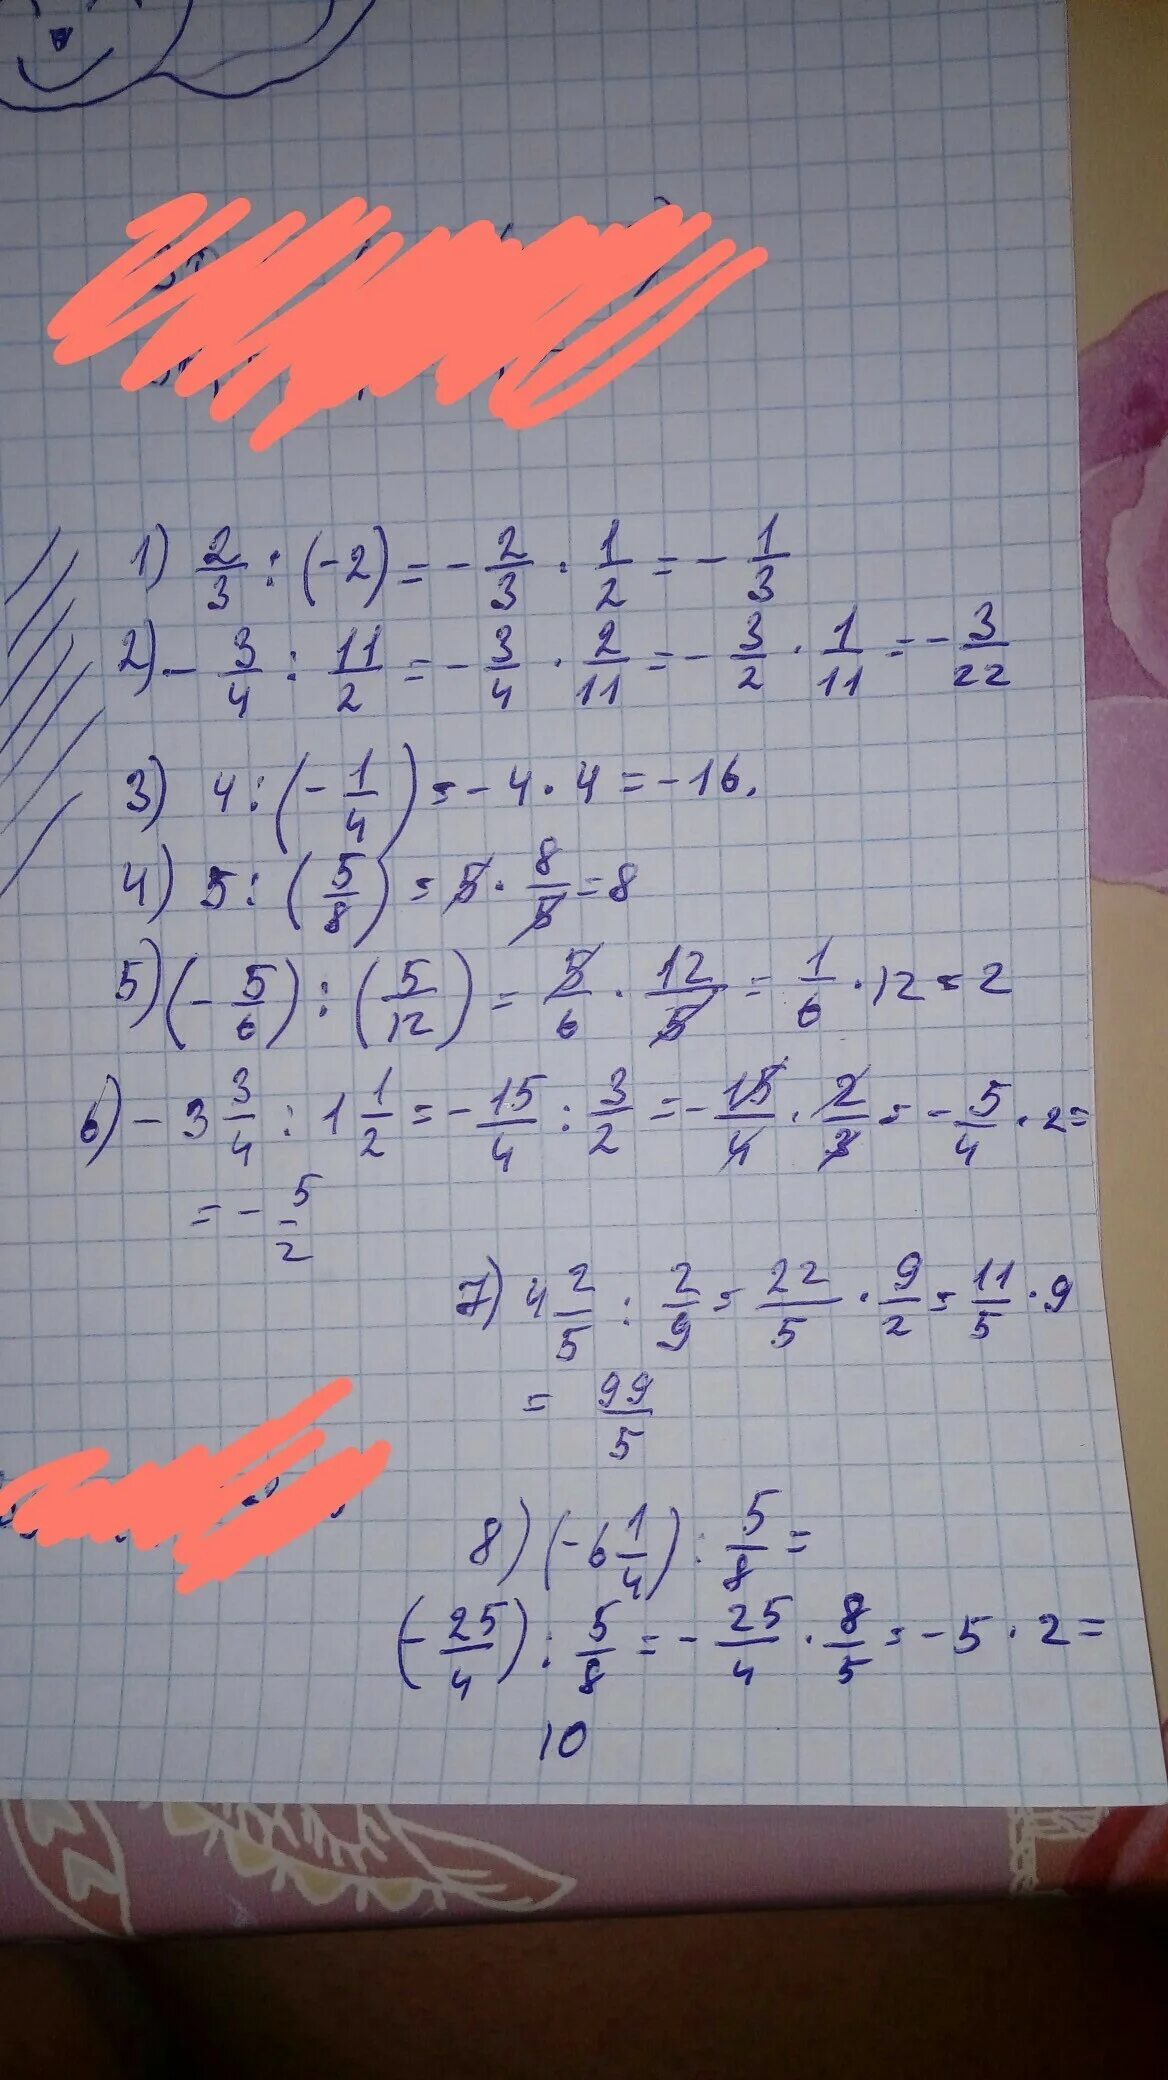 1) 2/3 : (-2) = - 2/3 · 1/2 = - 1/3
2) - 3/4 : 11/2 = - 3/4 · 2/11 = - 3/2 · 1/11 = - 3/22
3) 4 : (- 1/4) = - 4 · 4 = -16.
4) 5 : (5/8) = 5 · 8/5 = 8
5) (- 5/6) : (5/12) = 5/6 · 12/5 = 1/6 · 12 = 2
6) - 3 3/4 : 1 1/2 = - 15/4 : 3/2 = - 15/4 · 2/3 = - 5/4 · 2 =
= - 5/2
7) 4 2/5 : 2/9 = 22/5 · 9/2 = 11/5 · 9
= 99/5
8) (-6 1/4) : 5/8 =
(- 25/4) : 5/8 = - 25/4 · 8/5 = - 5 · 2 =
10